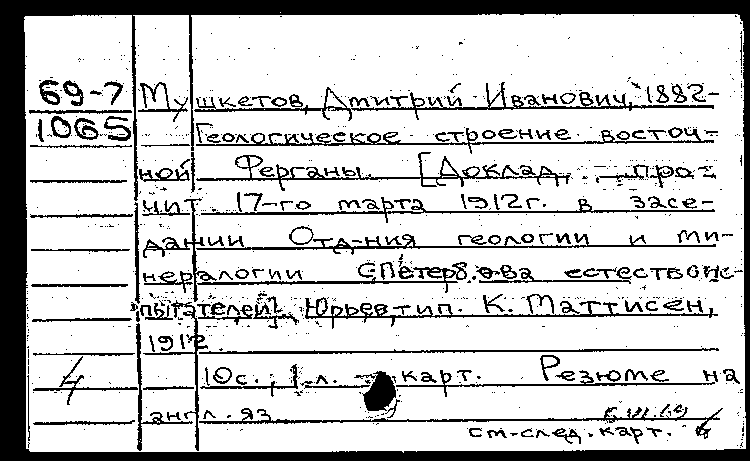 69-7 Мушкетов, Дмитрий Иванович, 1882-
1065 Геологическое строение восточ-
ной Ферганы. [Доклад, про-
чит. 17-го марта 1912 г. в засе-
дании Отд-ния геологии и ми-
нералогии СПетерб. о-ва естествоис-
пытателей]. Юрьев, тип. К. Маттисен,
1912.
4 10 с.; 1 л. карт. Резюме на
англ. яз.
см. след. карт.